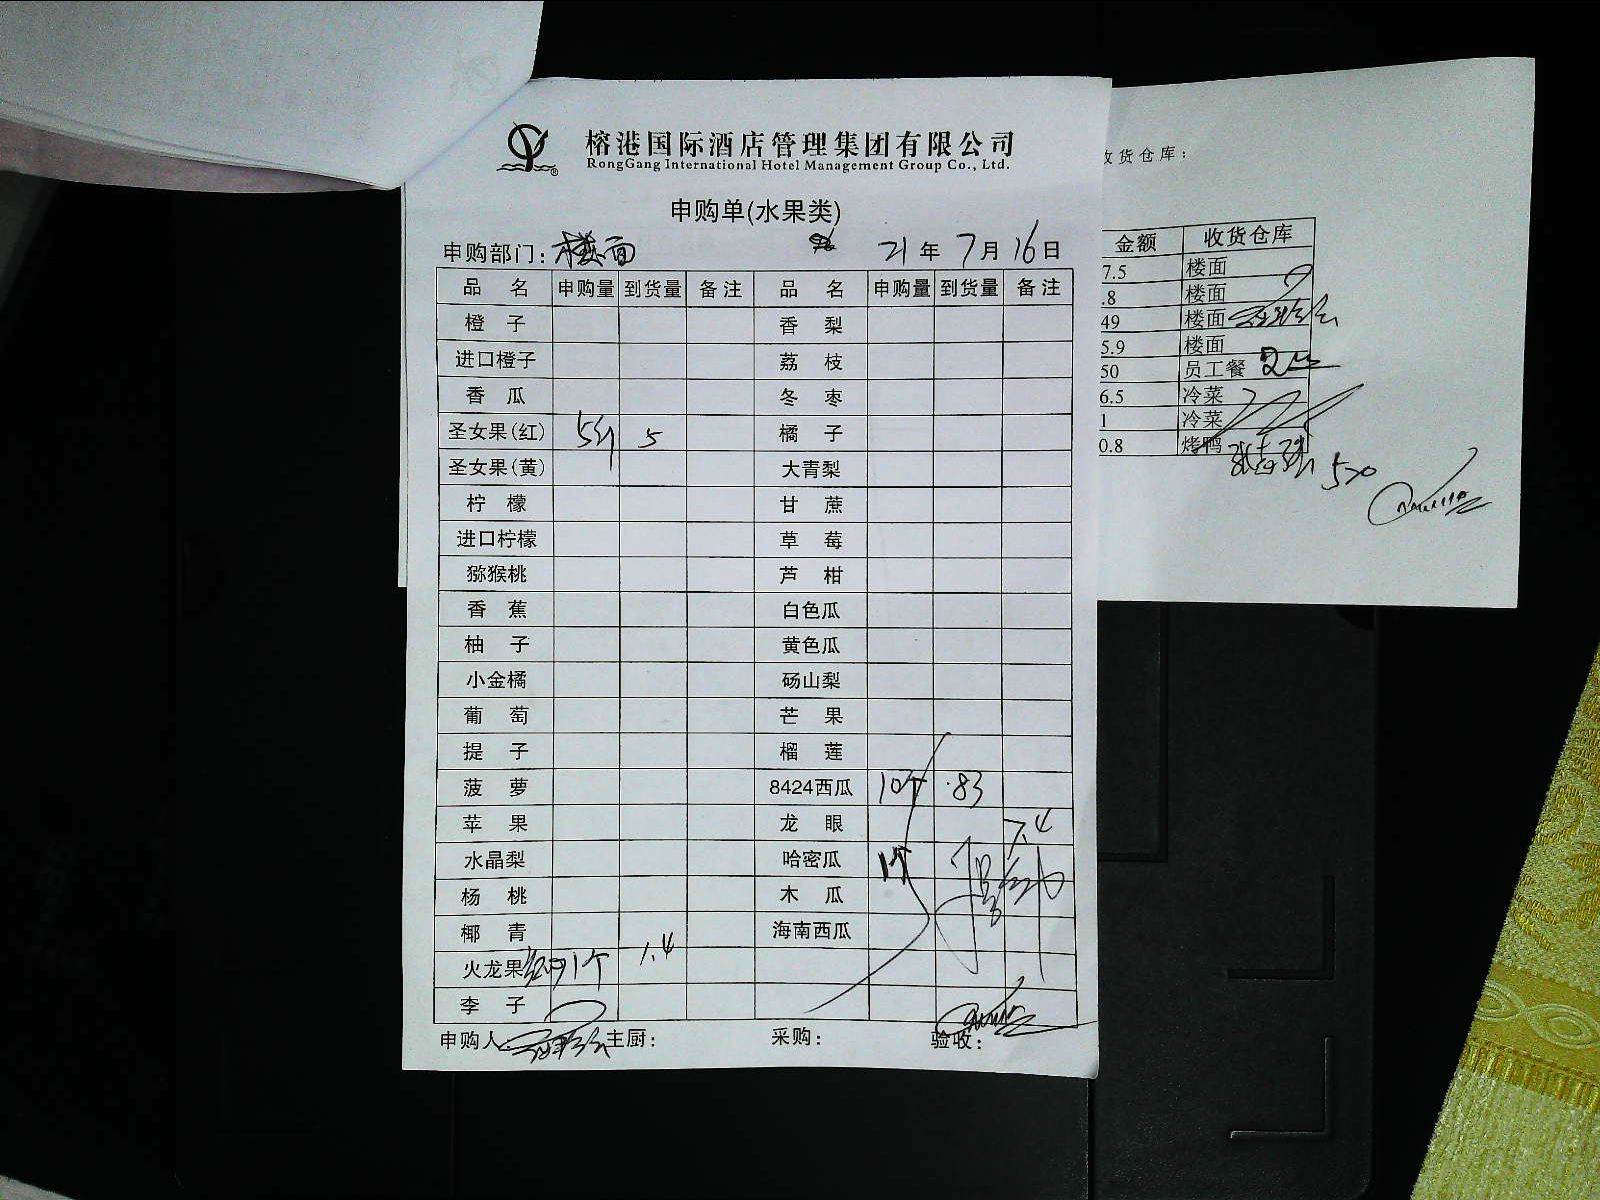 榕港国际酒店管理集团有限公司
RongGang International Hotel Management Group Co., Ltd.
申购单(水果类)
申购部门: 楼面 21 年 7 月 16 日
品 名 申购量 到货量 备注 品 名 申购量 到货量 备注
橙 子 香 梨
进口橙子 荔 枝
香 瓜 冬 枣
圣女果(红) 5斤 5 橘 子
圣女果(黄) 大青梨
柠 檬 甘 蔗
进口柠檬 草 莓
猕猴桃 芦 柑
香 蕉 白色瓜
柚 子 黄色瓜
小金橘 砀山梨
葡 萄 芒 果
提 子 榴 莲
菠 萝 8424西瓜 10个 83
苹 果 龙 眼
水晶梨 哈密瓜 1个 7.4
杨 桃 木 瓜
椰 青 海南西瓜
火龙果 1个 1.4
李 子
申购人: 主厨: 采购: 验收:
收货仓库:
金额 收货仓库
7.5 楼面
.8 楼面
49 楼面
5.9 楼面
50 员工餐
6.5 冷菜
1 冷菜
0.8 烤鸭